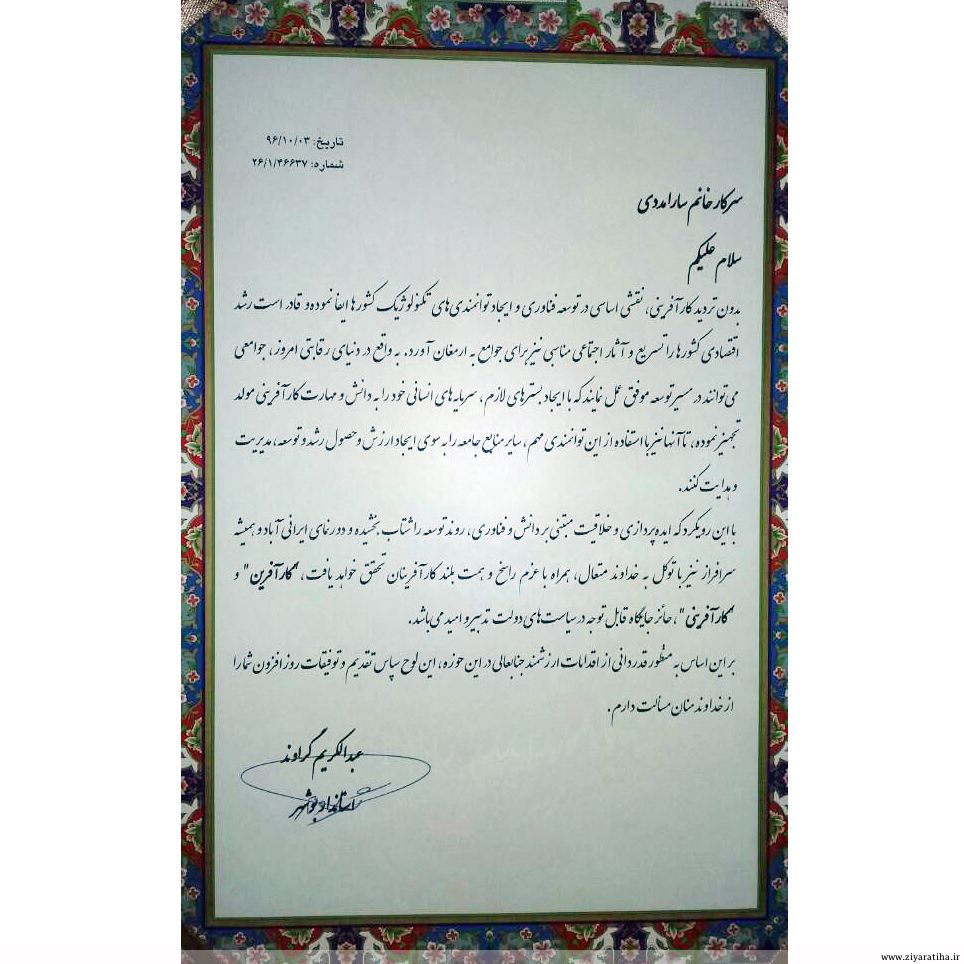 تاریخ: ۹۶/۱۰/۰۳
شماره: ۲۶/۱/۴۶۶۳۷
سرکار خانم سارا مددی
سلام علیکم
بدون تردید کارآفرینی، نقشی اساسی در توسعه فناوری و ایجاد توانمندی‌های تکنولوژیک کشورها ایفا نموده و قادر است رشد
اقتصادی کشورها را تسریع و آثار اجتماعی مناسبی نیز برای جوامع به ارمغان آورد. به واقع در دنیای رقابتی امروز، جوامعی
می‌توانند در مسیر توسعه موفق عمل نمایند که با ایجاد بسترهای لازم، سرمایه‌های انسانی خود را به دانش و مهارت کارآفرینی مولد
تجهیز نموده، تا آنها نیز با استفاده از این توانمندی مهم، سایر منابع جامعه را به سوی ایجاد ارزش و حصول رشد و توسعه، مدیریت
و هدایت کنند.
با این رویکرد که ایده‌پردازی و خلاقیت مبتنی بر دانش و فناوری، روند توسعه را شتاب بخشیده و دورنمای ایرانی آباد و همیشه
سرافراز نیز با توکل به خداوند متعال، همراه با عزم راسخ و همت بلند کارآفرینان تحقق خواهد یافت، "کارآفرین" و
"کارآفرینی"، حائز جایگاه قابل توجه در سیاست‌های دولت تدبیر و امید می‌باشد.
بر این اساس به منظور قدردانی از اقدامات ارزشمند جنابعالی در این حوزه، این لوح سپاس تقدیم و توفیقات روزافزون شما را
از خداوند منان مسألت دارم.
عبدالکریم گراوند
استاندار بوشهر
www.ziyaratiha.ir